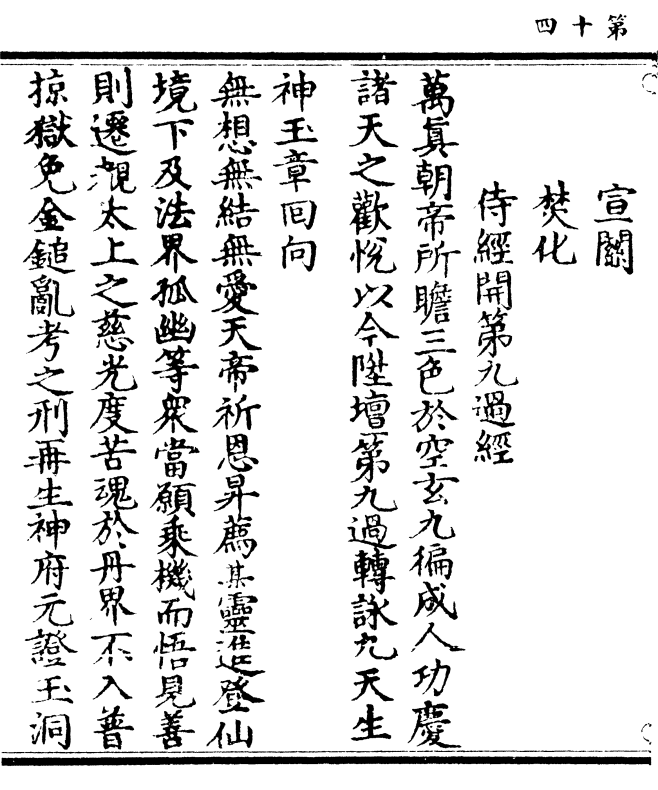 第十四
宣關
焚化
侍經開第九過經
萬眞朝帝所瞻三色於空玄九徧成人功慶
諸天之歡悅以今陞壇第九過轉詠九天生
神玉章回向
無想無結無愛天帝祈恩昇薦某靈進登仙
境下及法界孤幽等衆當願乘機而悟見善
則遷覩太上之慈光度苦魂於丹界不入普
掠獄免金鎚亂考之刑再生神府元證玉洞